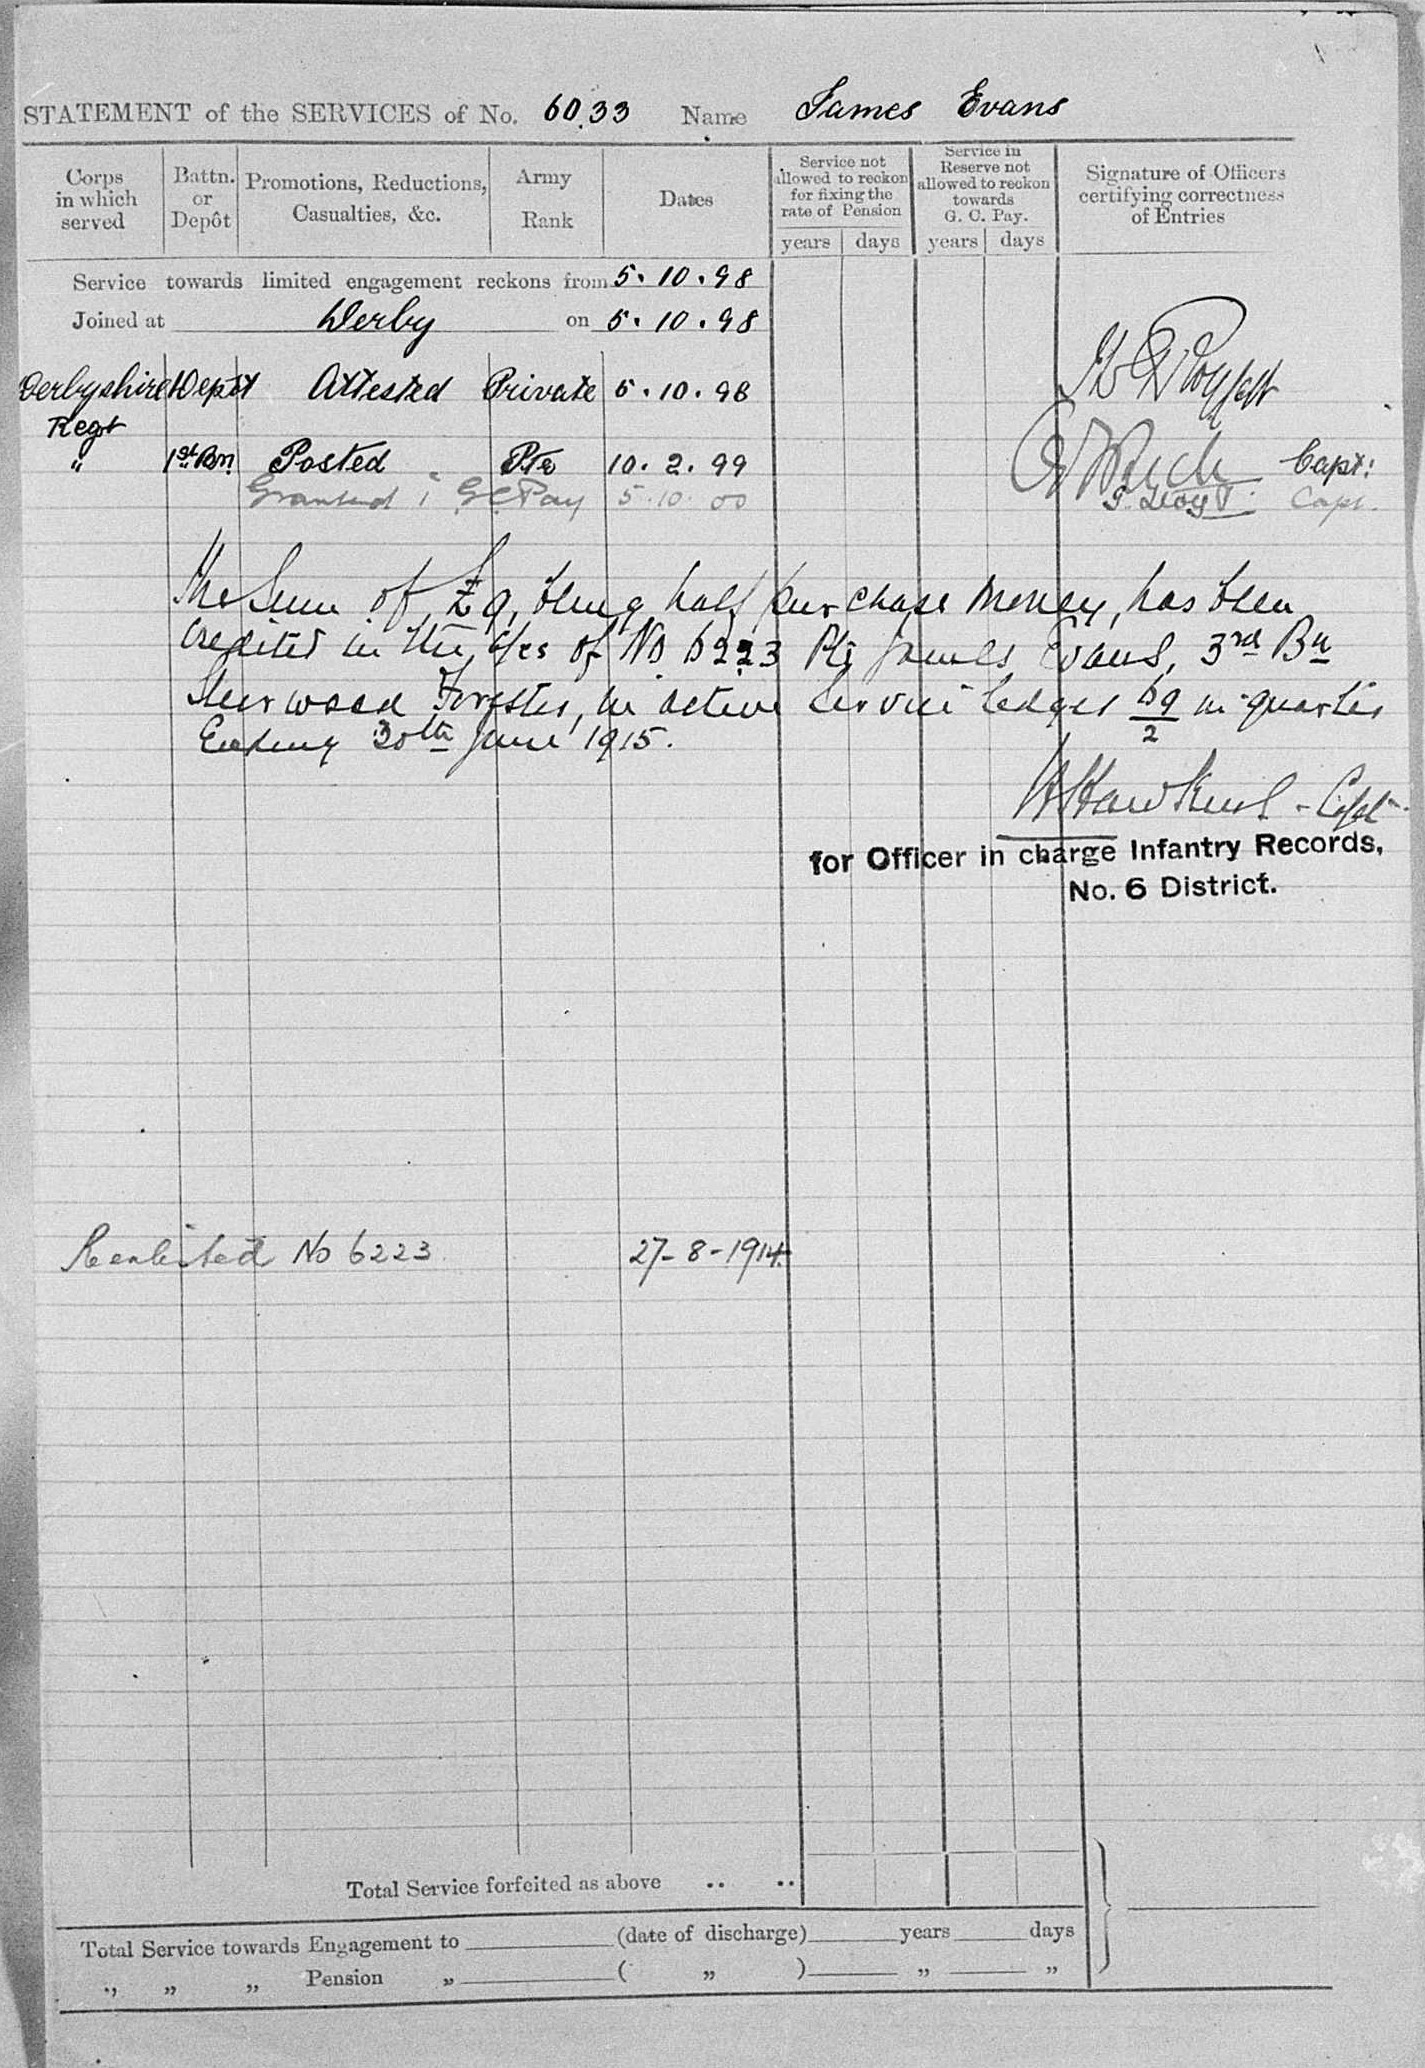 STATEMENT of the SERVICES of No. 6033 Name James Evans
Corps in which served
Battn. or Depôt
Promotions, Reductions, Casualties, &c.
Army Rank
Dates
Service not allowed to reckon for fixing the rate of Pension
years days
Service in Reserve not allowed to reckon towards G. C. Pay.
years days
Signature of Officers certifying correctness of Entries
Service towards limited engagement reckons from 5.10.98
Joined at Derby on 5.10.98
Derbyshire Depôt Attested Private 5.10.98
Regt
" 1st Bn Posted Pte 10.2.99 Capt:
Granted 1 G.C. Pay 5.10.00 Capt.
The Sum of £9, being half purchase money, has been
credited in the a/cs of No 6223 Pte James Evans, 3rd Bn
Sherwood Forester, in active service ledger 69/2 in quarter
Ending 30th June 1915.
Hawkins - Capt
for Officer in charge Infantry Records,
No. 6 District.
Reenlisted No 6223 27-8-1914.
Total Service forfeited as above .. ..
Total Service towards Engagement to (date of discharge) years days
„ „ „ Pension „ ( „ ) „ „